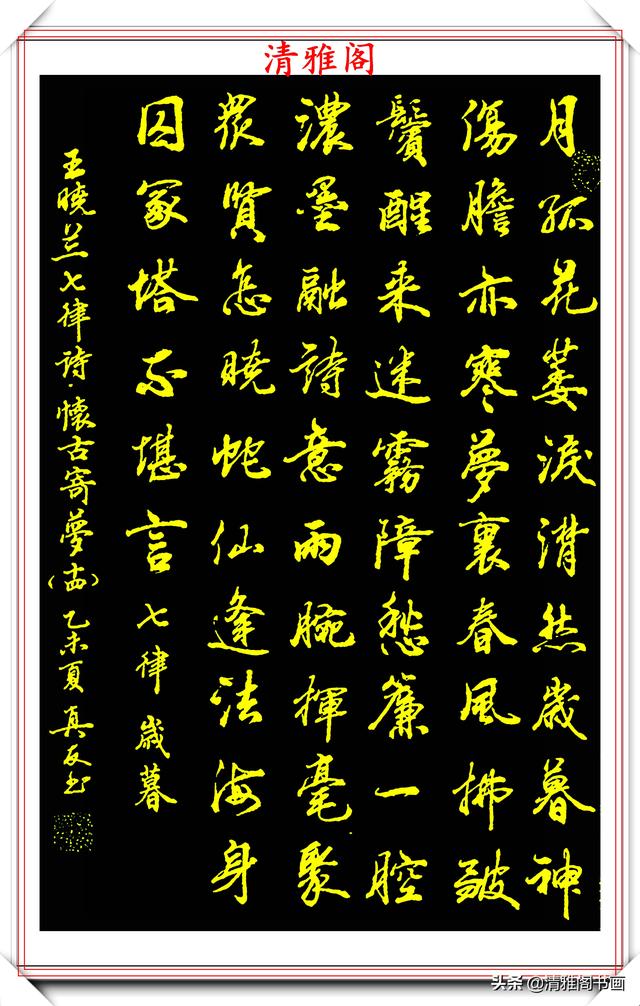 清雅阁
月孤花萎淚潸然歲暮神
傷膽亦寒夢裏春風拂皺
鬢醒來迷霧障愁簾一腔
濃墨融詩意兩腕揮毫聚
眾賢怎曉蛇仙逢法海身
囚冢塔不堪言七律歲暮
王曉兰七律詩·懷古寄夢(十四)乙未夏真友书
头条@清雅阁书画